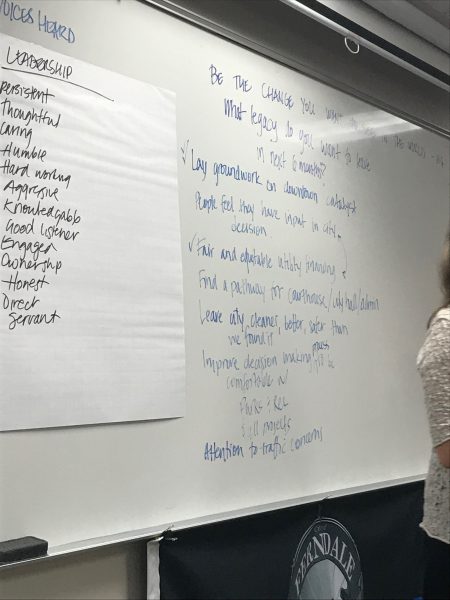 VOICES HEARD
LEADERSHIP
persistent
Thoughtful
caring
Humble
Hard working
Aggressive
Knowledgable
Good listener
Engaged
Ownership
Honest
Direct
Servant
BE THE CHANGE YOU WANT TO SEE IN THE WORLD
What legacy do you want to leave
in next 6 months?
✓ Lay groundwork on downtown catalyst
People feel they have input in city
decision
✓ Fair and equitable utility financing
Find a pathway for courthouse/city hall/admin
Leave city cleaner, better, safer than
we found it
Improve decision making process
comfortable w/
Parks & Rec
Attention to traffic concerns
FERNDALE